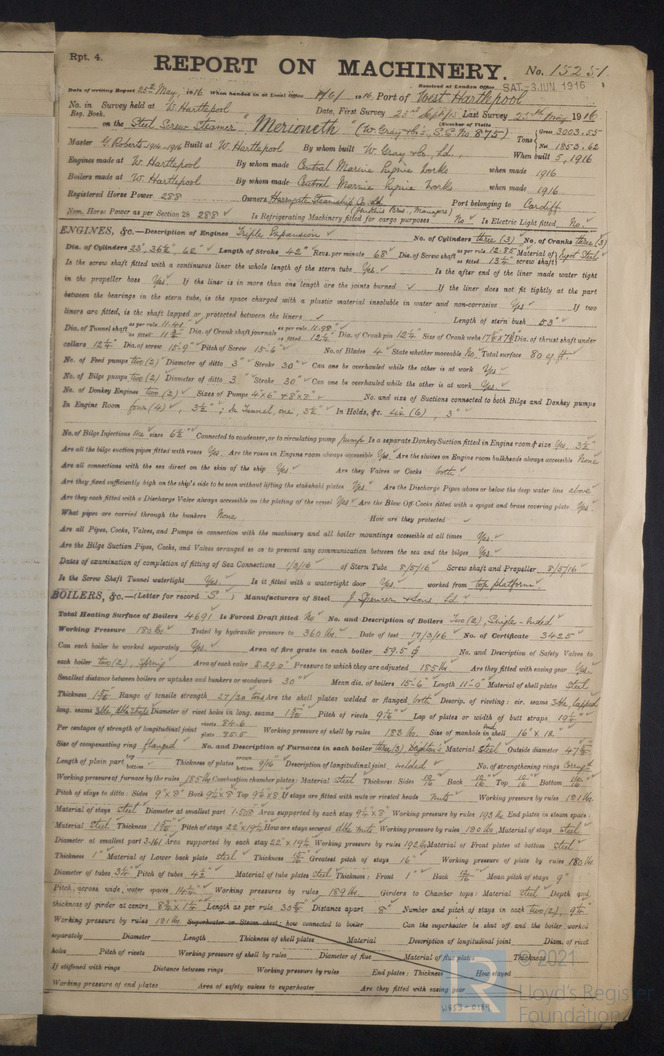 Rpt. 4.
REPORT ON MACHINERY. No. 15251
Received at London Office SAT. 3 JUN. 1916
Date of writing Report 25th May, 1916 When handed in at Local Office 1/6/1916 Port of West Hartlepool
No. in Survey held at W. Hartlepool Date, First Survey Last Survey 25th May 1916
Reg. Book. (Number of Visits
on the Steel Screw Steamer "Merioneth" (W. Gray & Co's. S.S. No 875) Tons Gross 3003.55 Net 1853.62
Master G. Roberts Built at W. Hartlepool By whom built W. Gray & Co. Ld. When built 5, 1916
Engines made at W. Hartlepool By whom made Central Marine Engine Works when made 1916
Boilers made at W. Hartlepool By whom made Central Marine Engine Works when made 1916
Registered Horse Power 288 Owners Steamship Co. Ld Port belonging to Cardiff
Nom. Horse Power as per Section 28 288 Is Refrigerating Machinery fitted for cargo purposes No Is Electric Light fitted No.
ENGINES, &c.—Description of Engines Triple Expansion No. of Cylinders three (3) No. of Cranks three (3)
Dia. of Cylinders 23", 36½", 62" Length of Stroke 42" Revs. per minute 68 Dia. of Screw shaft as per rule 12.85" as fitted 13¼" Material of screw shaft Ingot Steel
Is the screw shaft fitted with a continuous liner the whole length of the stern tube Yes. Is the after end of the liner made water tight
in the propeller boss Yes If the liner is in more than one length are the joints burned ✓ If the liner does not fit tightly at the part
between the bearings in the stern tube, is the space charged with a plastic material insoluble in water and non-corrosive Yes If two
liners are fitted, is the shaft lapped or protected between the liners ✓ Length of stern bush 53"
Dia. of Tunnel shaft as per rule 11.41 as fitted Dia. of Crank shaft journals as per rule 11.98" as fitted 12¼" Dia. of Crank pin 12¼" Size of Crank webs Dia. of thrust shaft under
collars 12¼" Dia. of screw 15'-9" Pitch of Screw 15'-6" No. of Blades 4 State whether moveable No Total surface 80 sq. ft.
No. of Feed pumps two (2) Diameter of ditto 3" Stroke 30" Can one be overhauled while the other is at work Yes
No. of Bilge pumps two (2) Diameter of ditto 3 Stroke 30" Can one be overhauled while the other is at work Yes
No. of Donkey Engines two (2) Sizes of Pumps 4x6" & 8x8" No. and size of Suctions connected to both Bilge and Donkey pumps
In Engine Room four (4), 3½"; In Tunnel, one, 3½" In Holds, &c. six (6), 3"
No. of Bilge Injections one sizes 6½" Connected to condenser, or to circulating pump pump Is a separate Donkey Suction fitted in Engine room & size Yes, 3½"
Are all the bilge suction pipes fitted with roses Yes. Are the roses in Engine room always accessible Yes. Are the sluices on Engine room bulkheads always accessible None
Are all connections with the sea direct on the skin of the ship Yes Are they Valves or Cocks both
Are they fixed sufficiently high on the ship's side to be seen without lifting the stokehold plates Yes Are the Discharge Pipes above or below the deep water line above
Are they each fitted with a Discharge Valve always accessible on the plating of the vessel Yes Are the Blow Off Cocks fitted with a spigot and brass covering plate Yes
What pipes are carried through the bunkers None How are they protected ✓
Are all Pipes, Cocks, Valves, and Pumps in connection with the machinery and all boiler mountings accessible at all times Yes.
Are the Bilge Suction Pipes, Cocks, and Valves arranged so as to prevent any communication between the sea and the bilges Yes.
Dates of examination of completion of fitting of Sea Connections of Stern Tube 8/5/16 Screw shaft and Propeller 8/5/16
Is the Screw Shaft Tunnel watertight Yes Is it fitted with a watertight door Yes worked from top platform
BOILERS, &c.—(Letter for record S) Manufacturers of Steel J. Spencer & Sons Ld.
Total Heating Surface of Boilers 4691 Is Forced Draft fitted No No. and Description of Boilers Two (2), Single-ended
Working Pressure 180 lbs Tested by hydraulic pressure to 360 lbs Date of test 17/3/16 No. of Certificate 3425
Can each boiler be worked separately Yes. Area of fire grate in each boiler 59.5 No. and Description of Safety Valves to
each boiler two (2), Spring Area of each valve 8.290" Pressure to which they are adjusted 185 lbs Are they fitted with easing gear Yes
Smallest distance between boilers or uptakes and bunkers or woodwork 30" Mean dia. of boilers 15'-6" Length 11'-0" Material of shell plates Steel
Thickness Range of tensile strength 27/32 tons Are the shell plates welded or flanged both Descrip. of riveting: cir. seams
long. seams Diameter of rivet holes in long. seams Pitch of rivets Lap of plates or width of butt straps
Per centages of strength of longitudinal joint rivets 84.6 plate Working pressure of shell by rules 183 lbs Size of manhole in shell 16" x 12
Size of compensating ring flanged No. and Description of Furnaces in each boiler three (3) Deighton's Material Steel Outside diameter
Length of plain part top bottom Thickness of plates crown bottom 9/16" Description of longitudinal joint welded No. of strengthening rings
Working pressure of furnace by the rules 185 lbs Combustion chamber plates: Material steel Thickness: Sides Back Top Bottom
Pitch of stays to ditto: Sides 9"x8" Back Top If stays are fitted with nuts or riveted heads nuts Working pressure by rules 181 lbs
Material of stays Steel Diameter at smallest part Area supported by each stay Working pressure by rules 193 lbs End plates in steam space:
Material Steel Thickness Pitch of stays How are stays secured dble nuts Working pressure by rules 180 lbs Material of stays Steel
Diameter at smallest part 3.161 Area supported by each stay Working pressure by rules 192 lbs Material of Front plates at bottom steel
Thickness 1" Material of Lower back plate steel Thickness Greatest pitch of stays 16" Working pressure of plate by rules 180 lbs
Diameter of tubes 3¼ Pitch of tubes 4½ Material of tube plates steel Thickness: Front 1" Back Mean pitch of stays 9"
Pitch across wide water spaces 14½" Working pressures by rules 189 lbs. Girders to Chamber tops: Material steel Depth and
thickness of girder at centre Length as per rule Distance apart 8" Number and pitch of stays in each two (2),
Working pressure by rules 181 lbs Superheater or Steam chest; how connected to boiler Can the superheater be shut off and the boiler worked
separately Diameter Length Thickness of shell plates Material Description of longitudinal joint Diam. of rivet
holes Pitch of rivets Working pressure of shell by rules Diameter of flue Material of flue plates Thickness
If stiffened with rings Distance between rings Working pressure by rules End plates: Thickness How stayed
Working pressure of end plates Area of safety valves to superheater Are they fitted with easing gear
© 2021
Lloyd's Register
Foundation